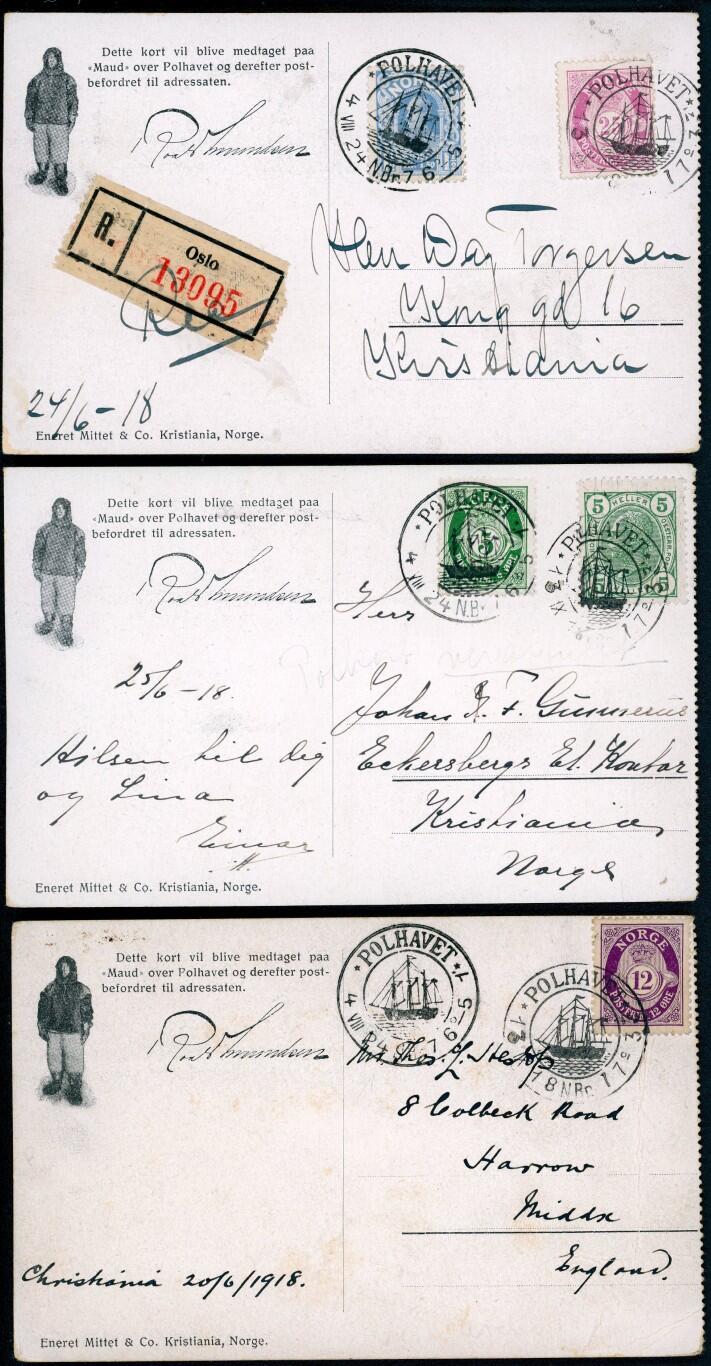 Dette kort vil blive medtaget paa
«Maud» over Polhavet og derefter post-
befordret til adressaten.
Roald Amundsen
POLHAVET
4 VIII 24 N.Br. 76
POLHAVET
25
R.
Oslo
13095
Rec
Herr Dag Torgersen
Kong gd 16
Kristiania
24/6-18
Eneret Mittet & Co. Kristiania, Norge.
Dette kort vil blive medtaget paa
«Maud» over Polhavet og derefter post-
befordret til adressaten.
Roald Amundsen
POLHAVET
4 VIII 24 N.Br. 76
5
5 HELLER 5
POLHAVET
Herr
25/6-18.
Johan F. Gunnerus
Hilsen til dig
Eckersbergs El. Kontor
og Lina
Kristiania
Einar
Norge
Eneret Mittet & Co. Kristiania, Norge.
Dette kort vil blive medtaget paa
«Maud» over Polhavet og derefter post-
befordret til adressaten.
Roald Amundsen
POLHAVET
4 VIII
POLHAVET
NORGE
12
POSTFRIM. 12 ØRE
8 Colbeck Road
Harrow
Middx
England.
Christiania 20/6/1918.
Eneret Mittet & Co. Kristiania, Norge.